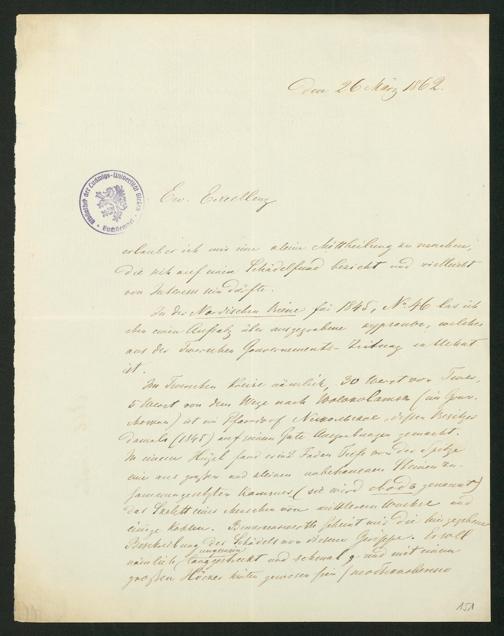 den 26 März 1862.
Bibliothek der Ludwigs-Universität Giessen
Ew. Excellenz
erlaube ich mir eine kleine Mittheilung zu machen,
die sich auf einen Schädelfund bezieht und vielleicht
von Interesse sein dürfte.
In der Nordischen Biene für 1845, No 46 las ich
eben einen Aufsatz über ausgegrabene welches
aus der Twerschen Gouvernements-Zeitung entlehnt
ist.
Im Twerschen Kreise nämlich, 30 Werst von Twer,
5 Werst von dem Wege nach Wolokolamsk (im Gouv.
Moskau) ist ein Pfarrdorf dessen Besitzer
damals (1845) auf seinem Gute Ausgrabungen gemacht.
In einem Hügel fand er
aus großen und kleinen unbehauenen Steinen zu-
sammengesetzten Kammer (sie wird genannt)
das Skelett eines Menschen von mittlerem Wuchse und
einige Kohlen. Bemerkenswerth scheint mir die hingegebene
Beschreibung des Schädels von diesem Gerippe. Er soll
nämlich ungemein langgestreckt und schmal, und mit einem
großen Höcker hinten gewesen sein
151